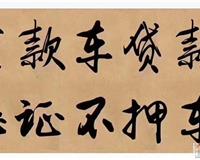 款车贷款
证不押车